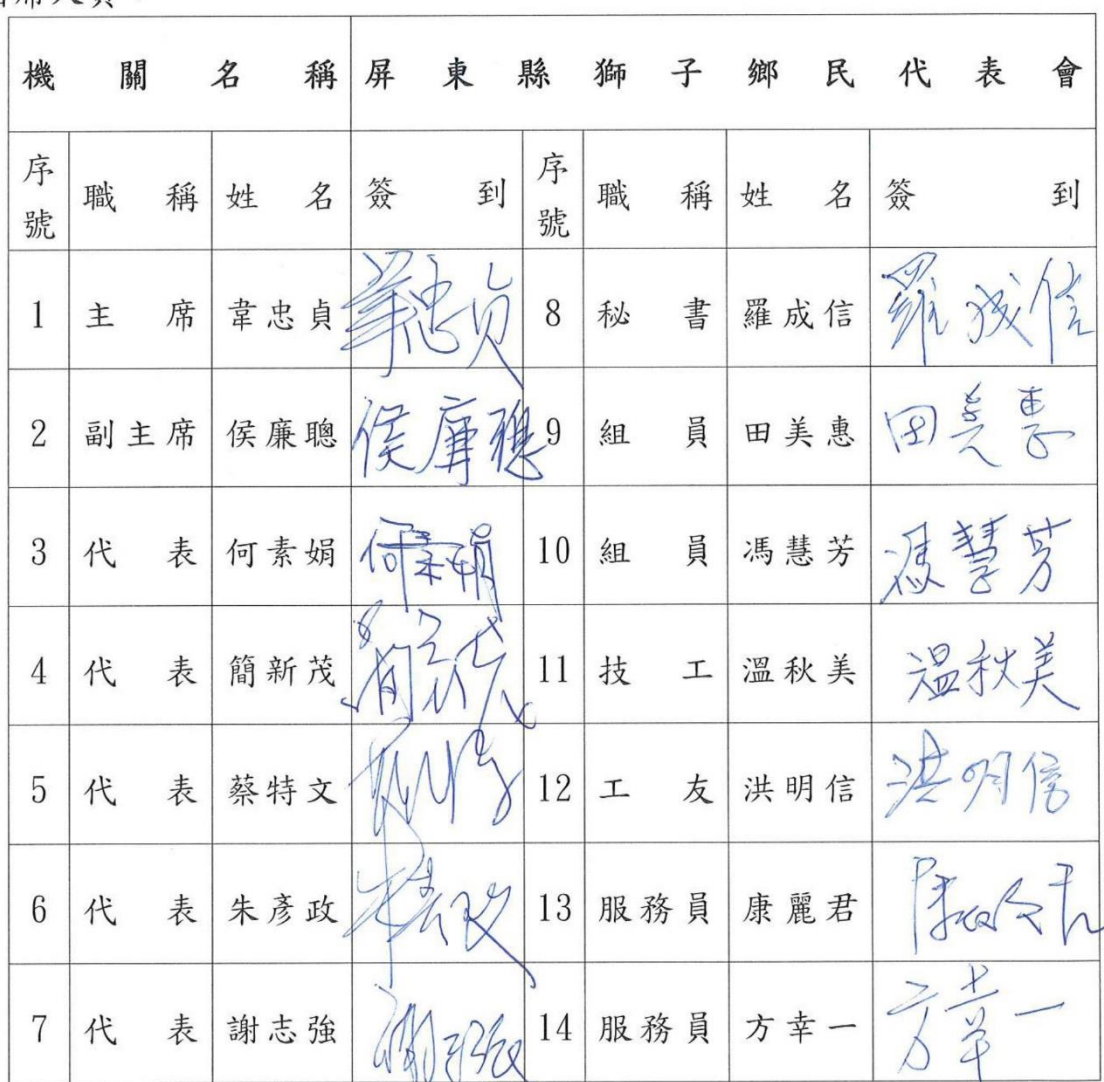 機關名稱 屏東縣獅子鄉民代表會
序號 職稱 姓名 簽到 序號 職稱 姓名 簽到
1 主席 韋忠貞 韋忠貞 8 秘書 羅成信 羅成信
2 副主席 侯廉聰 侯廉聰 9 組員 田美惠 田美惠
3 代表 何素娟 何素娟 10 組員 馮慧芳 馮慧芳
4 代表 簡新茂 11 技工 溫秋美 溫秋美
5 代表 蔡特文 12 工友 洪明信 洪明信
6 代表 朱彥政 朱彥政 13 服務員 康麗君
7 代表 謝志強 謝志強 14 服務員 方幸一 方幸一